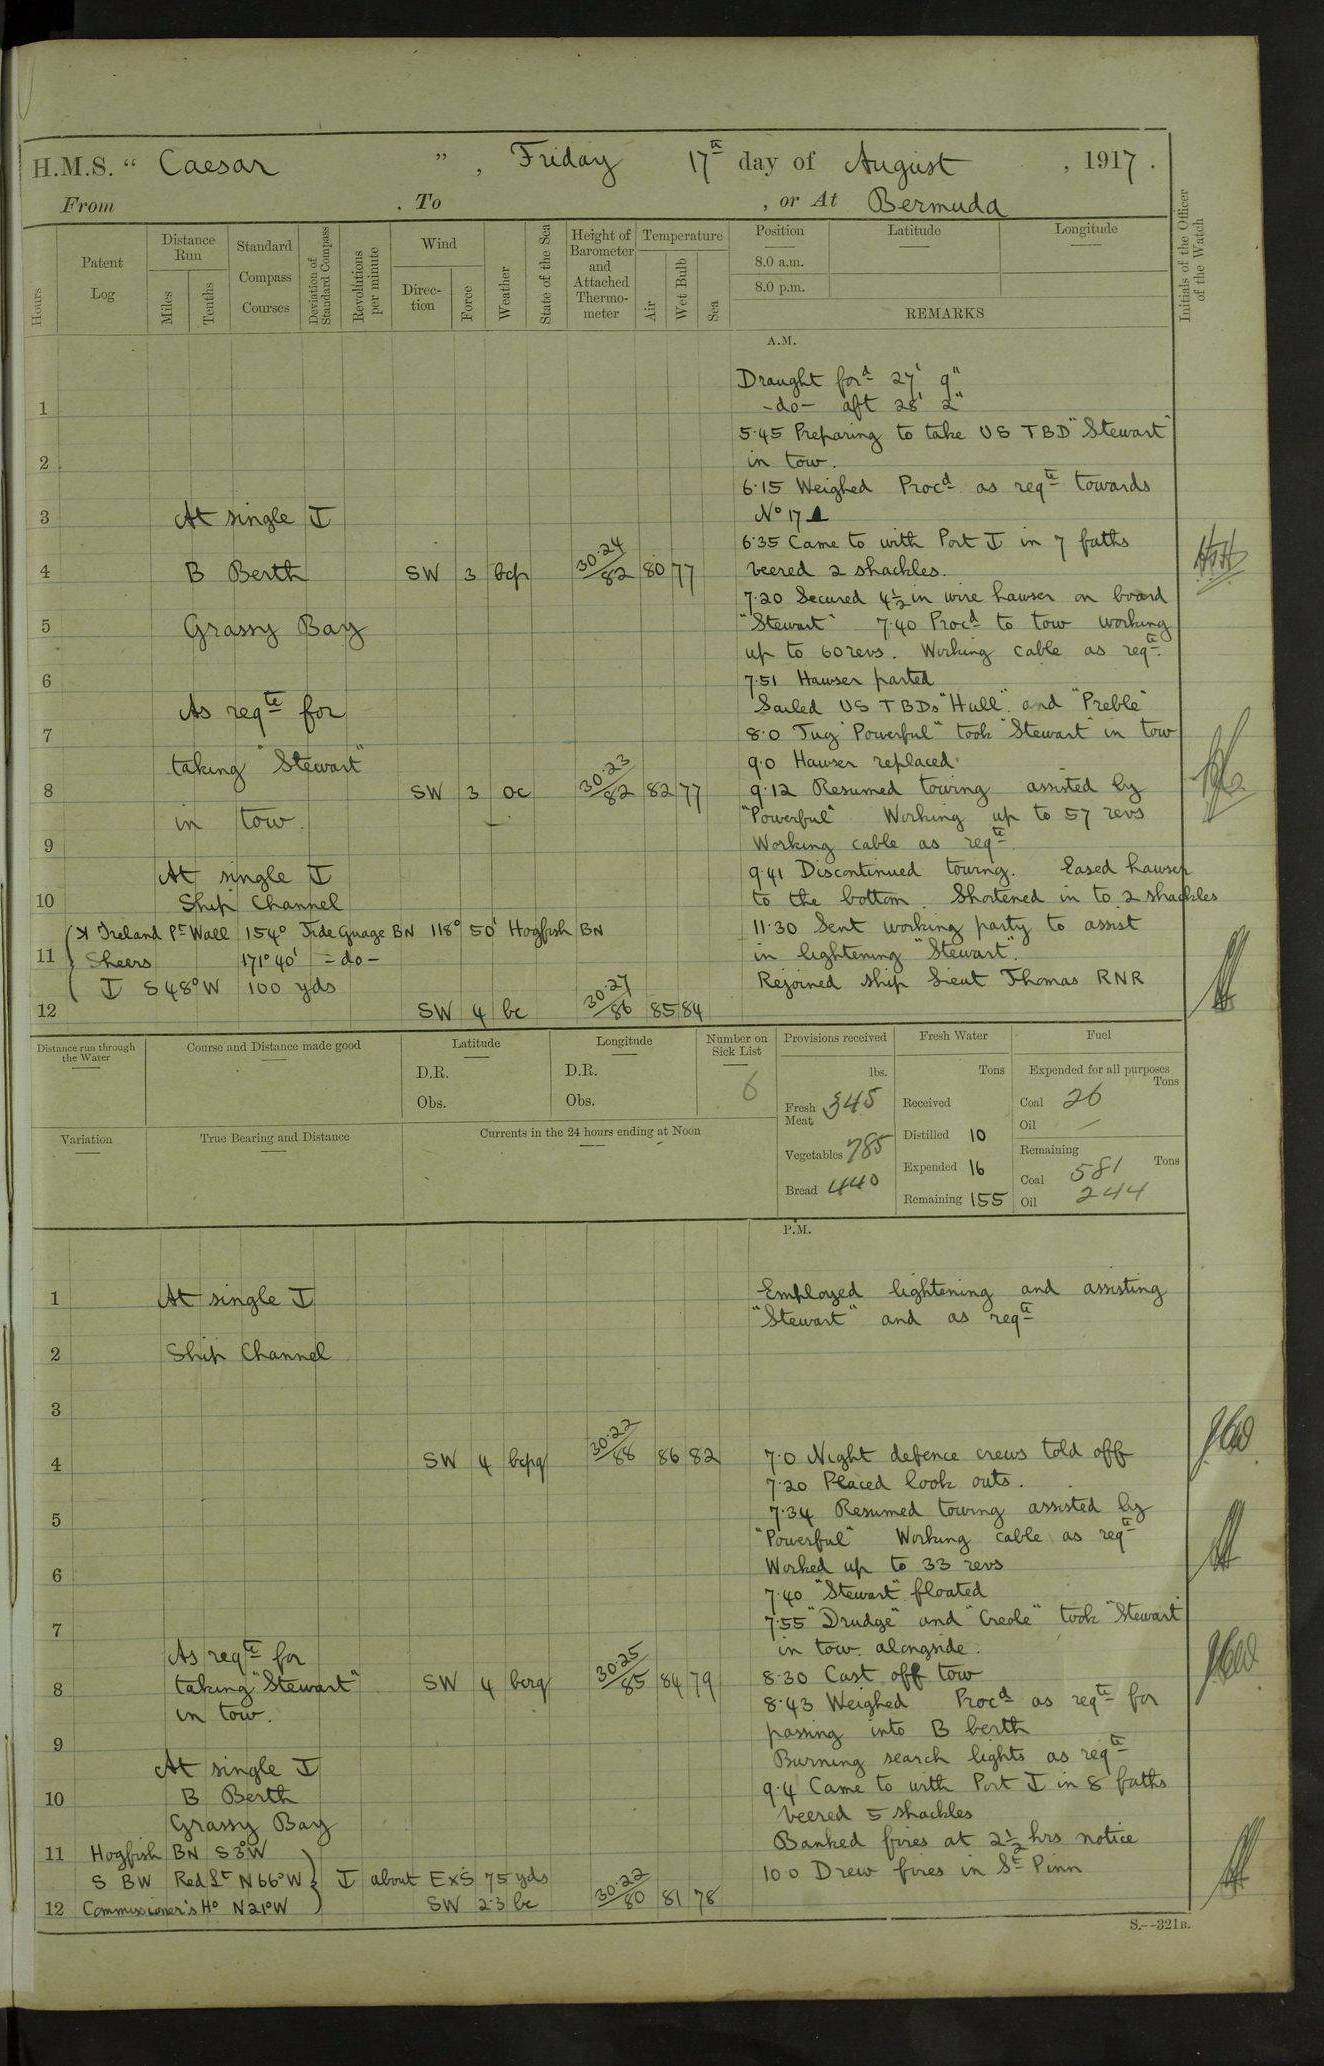 H.M.S. " Caesar ", Friday 17th day of August, 1917.
From . To , or At Bermuda
Hours
Patent Log
Distance Run
Miles
Tenths
Standard Compass Courses
Deviation of Standard Compass
Revolutions per minute
Wind
Direction
Force
Weather
State of the Sea
Height of Barometer and Attached Thermometer
Temperature
Air
Wet Bulb
Sea
Position
8.0 a.m.
8.0 p.m.
Latitude
Longitude
REMARKS
Initials of the Officer of the Watch
A.M.
Draught ford 27' 9"
1 -do- aft 28' 2"
5.45 Preparing to take US TBD "Stewart"
2 in tow.
6.15 Weighed Procd as reqte towards
3 At single No 17
6.35 Came to with Port in 7 faths
4 B Berth SW 3 bcp 30.24/82 80 77 veered 2 shackles.
7.20 Secured 4½ in wire hawser on board
5 Grassy Bay "Stewart" 7.40 Procd to tow working
up to 60 revs. Working cable as reqte.
6 7.51 Hawser parted
As reqte for Sailed US TBDs "Hull" and "Preble"
7 8.0 Tug "Powerful" took "Stewart" in tow
taking "Stewart" 9.0 Hawser replaced.
8 SW 3 oc 30.23/82 82 77 9.12 Resumed towing assisted by
in tow. "Powerful" Working up to 57 revs
9 Working cable as reqte.
At single 9.41 Discontinued towing. Eased hawser
10 Ship Channel to the bottom. Shortened in to 2 shackles
Ireland Pt Wall 154° Tide Guage BN 118° 50' Hogfish BN 11.30 Sent working party to assist
11 Sheers 171° 40' -do- in lightening "Stewart".
S48°W 100 yds Rejoined ship Lieut Thomas RNR
12 SW 4 bc 30.27/86 85 84
Distance run through the Water
Course and Distance made good
Latitude
D.R.
Obs.
Longitude
D.R.
Obs.
Number on Sick List
6
Provisions received
lbs.
Fresh Meat 345
Vegetables 785
Bread 440
Fresh Water
Tons
Received
Distilled 10
Expended 16
Remaining 155
Fuel
Expended for all purposes
Tons
Coal 26
Oil —
Remaining
Tons
Coal 581
Oil 244
Variation
True Bearing and Distance
Currents in the 24 hours ending at Noon
P.M.
1 At single Employed lightening and assisting
"Stewart" and as reqte
2 Ship Channel
3
4 SW 4 bcpq 30.22/88 86 82 7.0 Night defence crews told off
7.20 Placed look outs.
5 7.34 Resumed towing assisted by
"Powerful" Working cable as reqte
6 Worked up to 33 revs
7.40 "Stewart" floated
7 7.55 "Drudge" and "Creole" took "Stewart"
As reqte for in tow alongside.
8 taking "Stewart" SW 4 bcrq 30.25/85 84 79 8.30 Cast off tow
in tow. 8.43 Weighed Procd as reqte for
9 passing into B berth
At single Burning search lights as reqte
10 B Berth 9.4 Came to with Port in 8 faths
Grassy Bay veered 5 shackles
11 Hogfish BN S3°W Banked fires at 2½ hrs notice
S BW Red Lt N66°W about ExS 75 yds 10.0 Drew fires in St Pinn
12 Commissioner's Ho N21°W SW 2.3 bc 30.22/80 81 78
S.—321B.